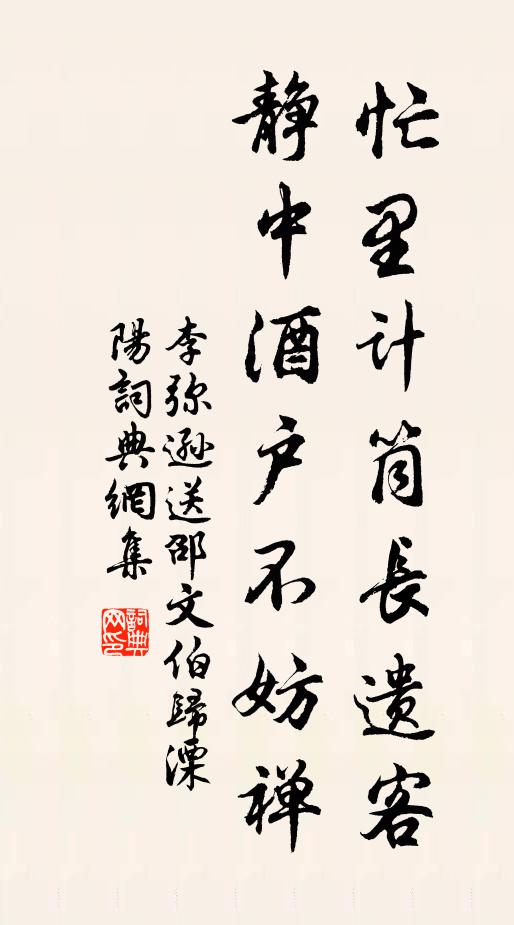 忙里计筒長遗客
静中酒户不妨禅
李弥遜送邵文伯歸溧
陽詞典網集
詞典网印